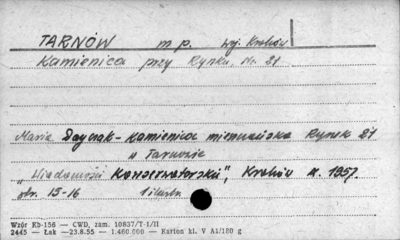 TARNÓW m p. woj. Kraków
Kamienica przy Rynku Nr. 21
Maria Dayczak - Kamienica mieszczańska Rynek 21
w Tarnowie
"Wiadomości Konserwatorskie", Kraków 1957.
str. 15-16 1 ilustr.
Wzór Kb-156 — CWD, zam. 10837/T-I/II
2445 — Łak —23.8.55 — 1.480.000 — Karton kl. V A1/180 g